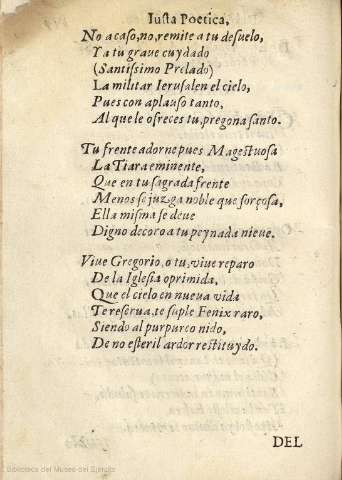 Iusta Poetica,
No acaso, no, remite a tu desuelo,
Ya tu graue cuydado
(Santissimo Prelado)
La militar Ierusalen el cielo,
Pues con aplauso tanto,
Al que le ofreces tu, pregona santo.
Tu frente adorne pues Magestuosa
La Tiara eminente,
Que en tu sagrada frente
Menos se juzga noble que forçosa,
Ella misma se deue
Digno decoro a tu peynada nieue.
Viue Gregorio, o tu, viue reparo
De la Iglesia oprimida,
Que el cielo en nueua vida
Te reserua, te suple Fenix raro,
Siendo al purpureo nido,
De no esteril ardor restituydo.
DEL
Biblioteca del Museo del Ejército